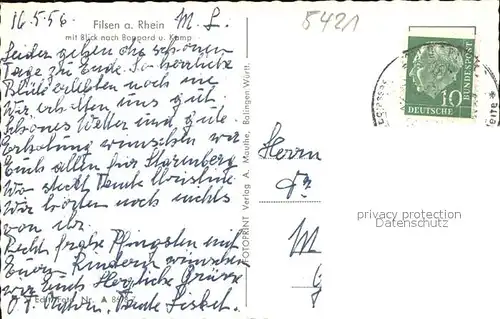 16.5.56. Filsen a. Rhein M. L. 5421
mit Blick nach Boppard u. Kamp
Leider gehen die schönen
Tage zu Ende. So herrliche
erlebten noch nie
Wir erholten uns gut.
Schönes Wetter und gute
Erholung wünschen wir
Euch allen für Starenberg
Wo steckt Tante Christine
Wir hörten noch nichts
von ihr
Recht frohe Pfingsten mit
Euren Kindern wünschen
wir Euch Herzliche Grüsse
Tante Liesbet.
Echt Foto Nr. A
FOTOPRINT Verlag A. Mauthe, Balingen Württ.
DEUTSCHE BUNDESPOST
10
Herrn
Dr
M
privacy protection
Datenschutz